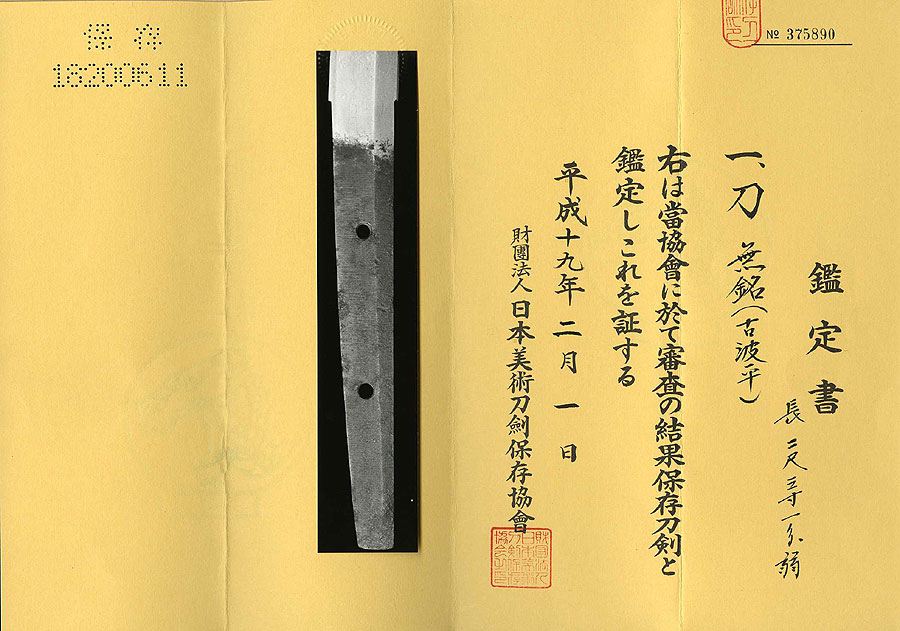 № 375890
鑑定書
一、刀 無銘(古波平)
長 二尺三寸一分弱
右は當協會に於て審査の結果保存刀剣と
鑑定しこれを証する
平成十九年 二月 一日
財團法人 日本美術刀劍保存協會
保存
18200611